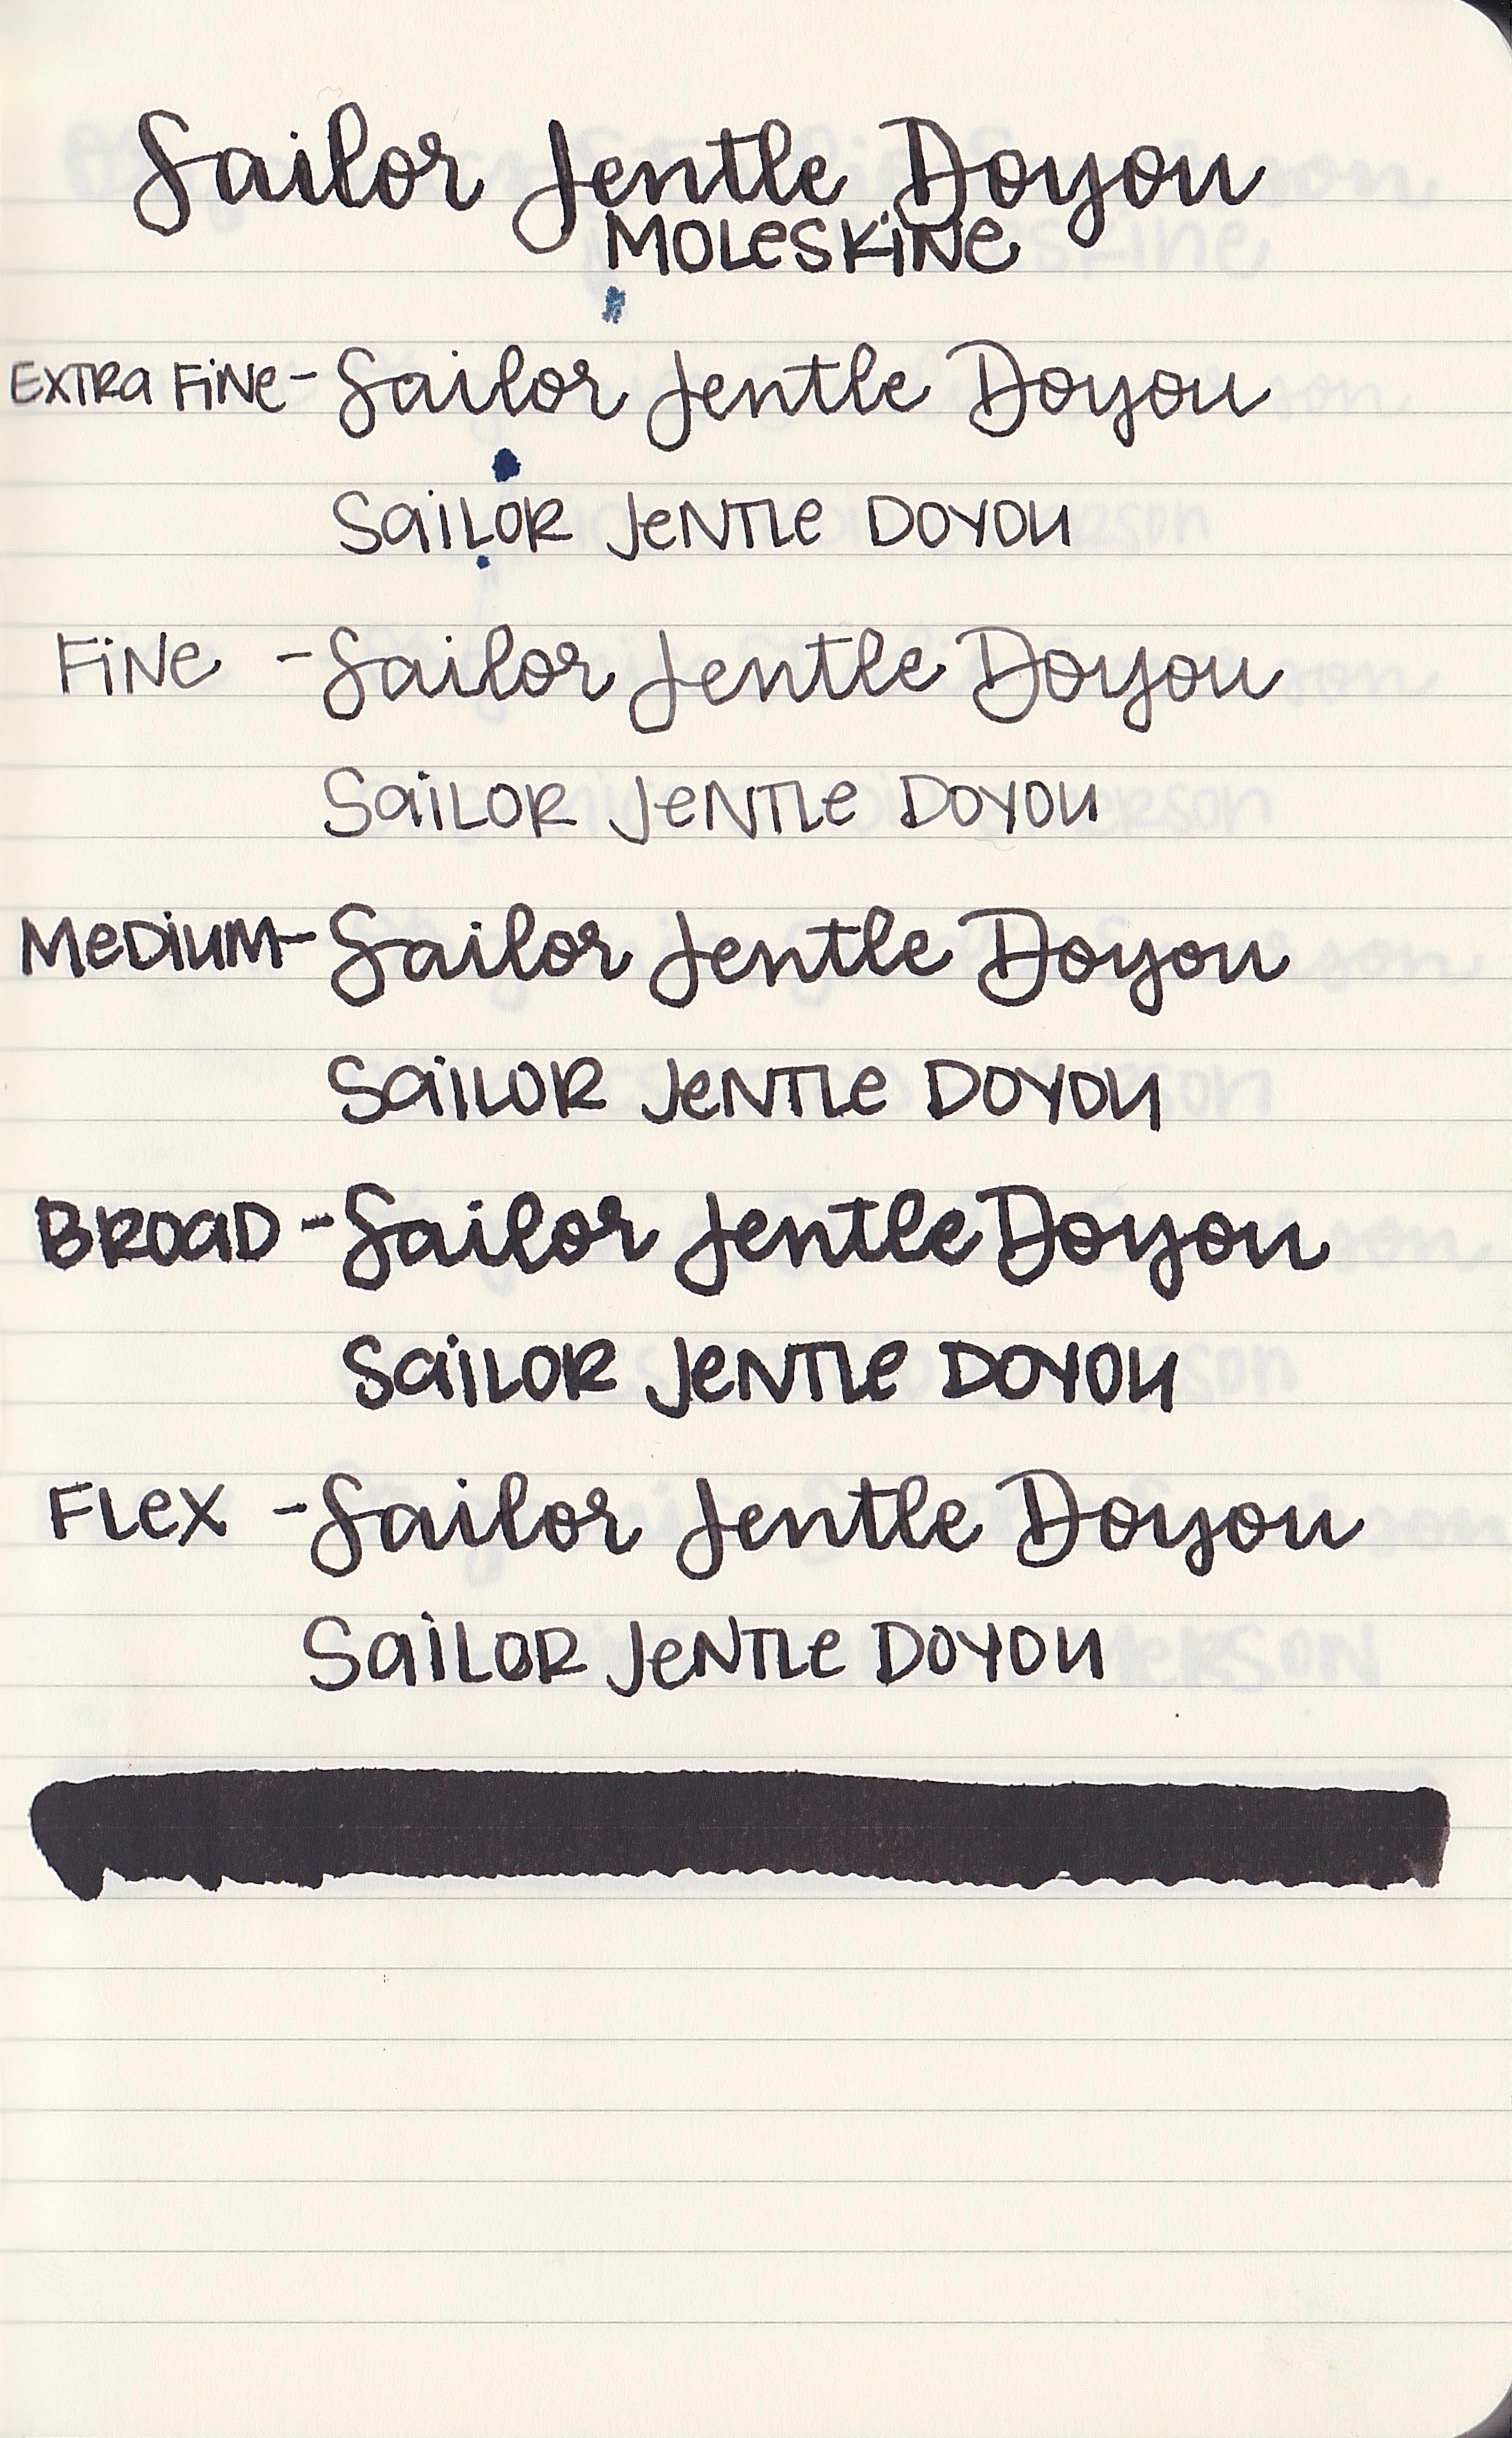 Sailor Jentle Doyou
MOLeSKiNe
EXTRa FiNe - Sailor Jentle Doyou
SaiLOR JeNTLe DOYOu
FiNe - Sailor Jentle Doyou
SaiLOR JeNTLe DOYOu
MeDiuM - Sailor Jentle Doyou
SaiLOR JeNTLe DOYOu
BROaD - Sailor Jentle Doyou
SaiLOR JeNTLe DOYOu
FLeX - Sailor Jentle Doyou
SaiLOR JeNTLe DOYOu